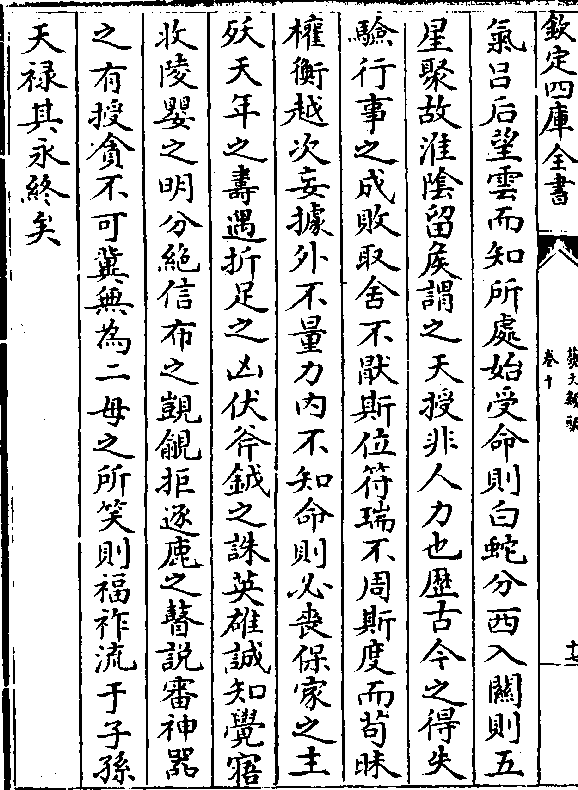 欽定四庫全書
卷十
氣呂后望雲而知所處始受命則白蛇分西入關則五
星聚故淮陰留侯謂之天授非人力也歷古今之得失
驗行事之成敗取舍不厭斯位符瑞不周斯度而苟昧
權衡越次妄據外不量力内不知命則必喪保家之主
殀天年之壽遇折足之凶伏斧鉞之誅英雄誠知覺寤
收陵嬰之明分絶信布之覬覦拒逐鹿之瞽説審神器
之有授貪不可冀無為二母之所笑則福祚流于子孫
天禄其永終矣